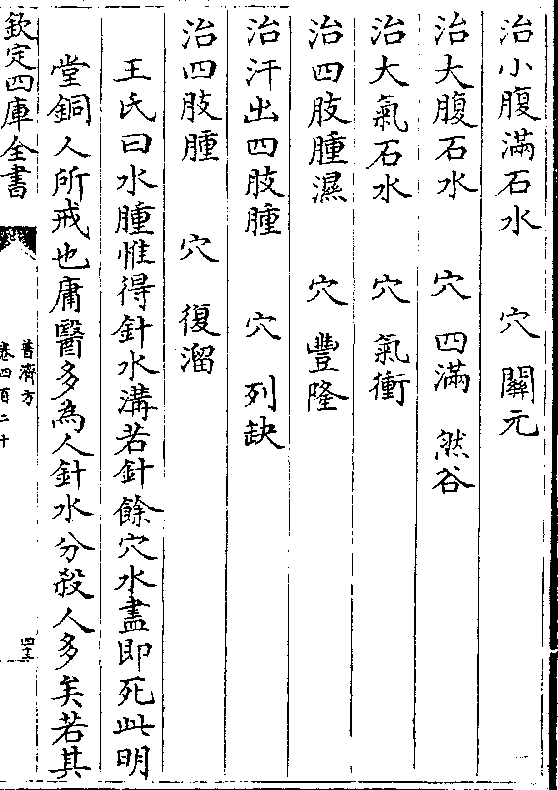 治小腹滿石水　穴　關元
治大腹石水　穴　四滿　然谷
治大氣石水　穴　氣衝
治四肢腫濕　穴　豐隆
治汗出四肢腫　穴　列缺
治四肢腫　穴　復溜
王氏曰水腫惟得針水溝若針餘穴水盡即死此明
堂銅人所戒也庸醫多為人針水分殺人多矣若其
欽定四庫全書
普濟方
卷四百二十